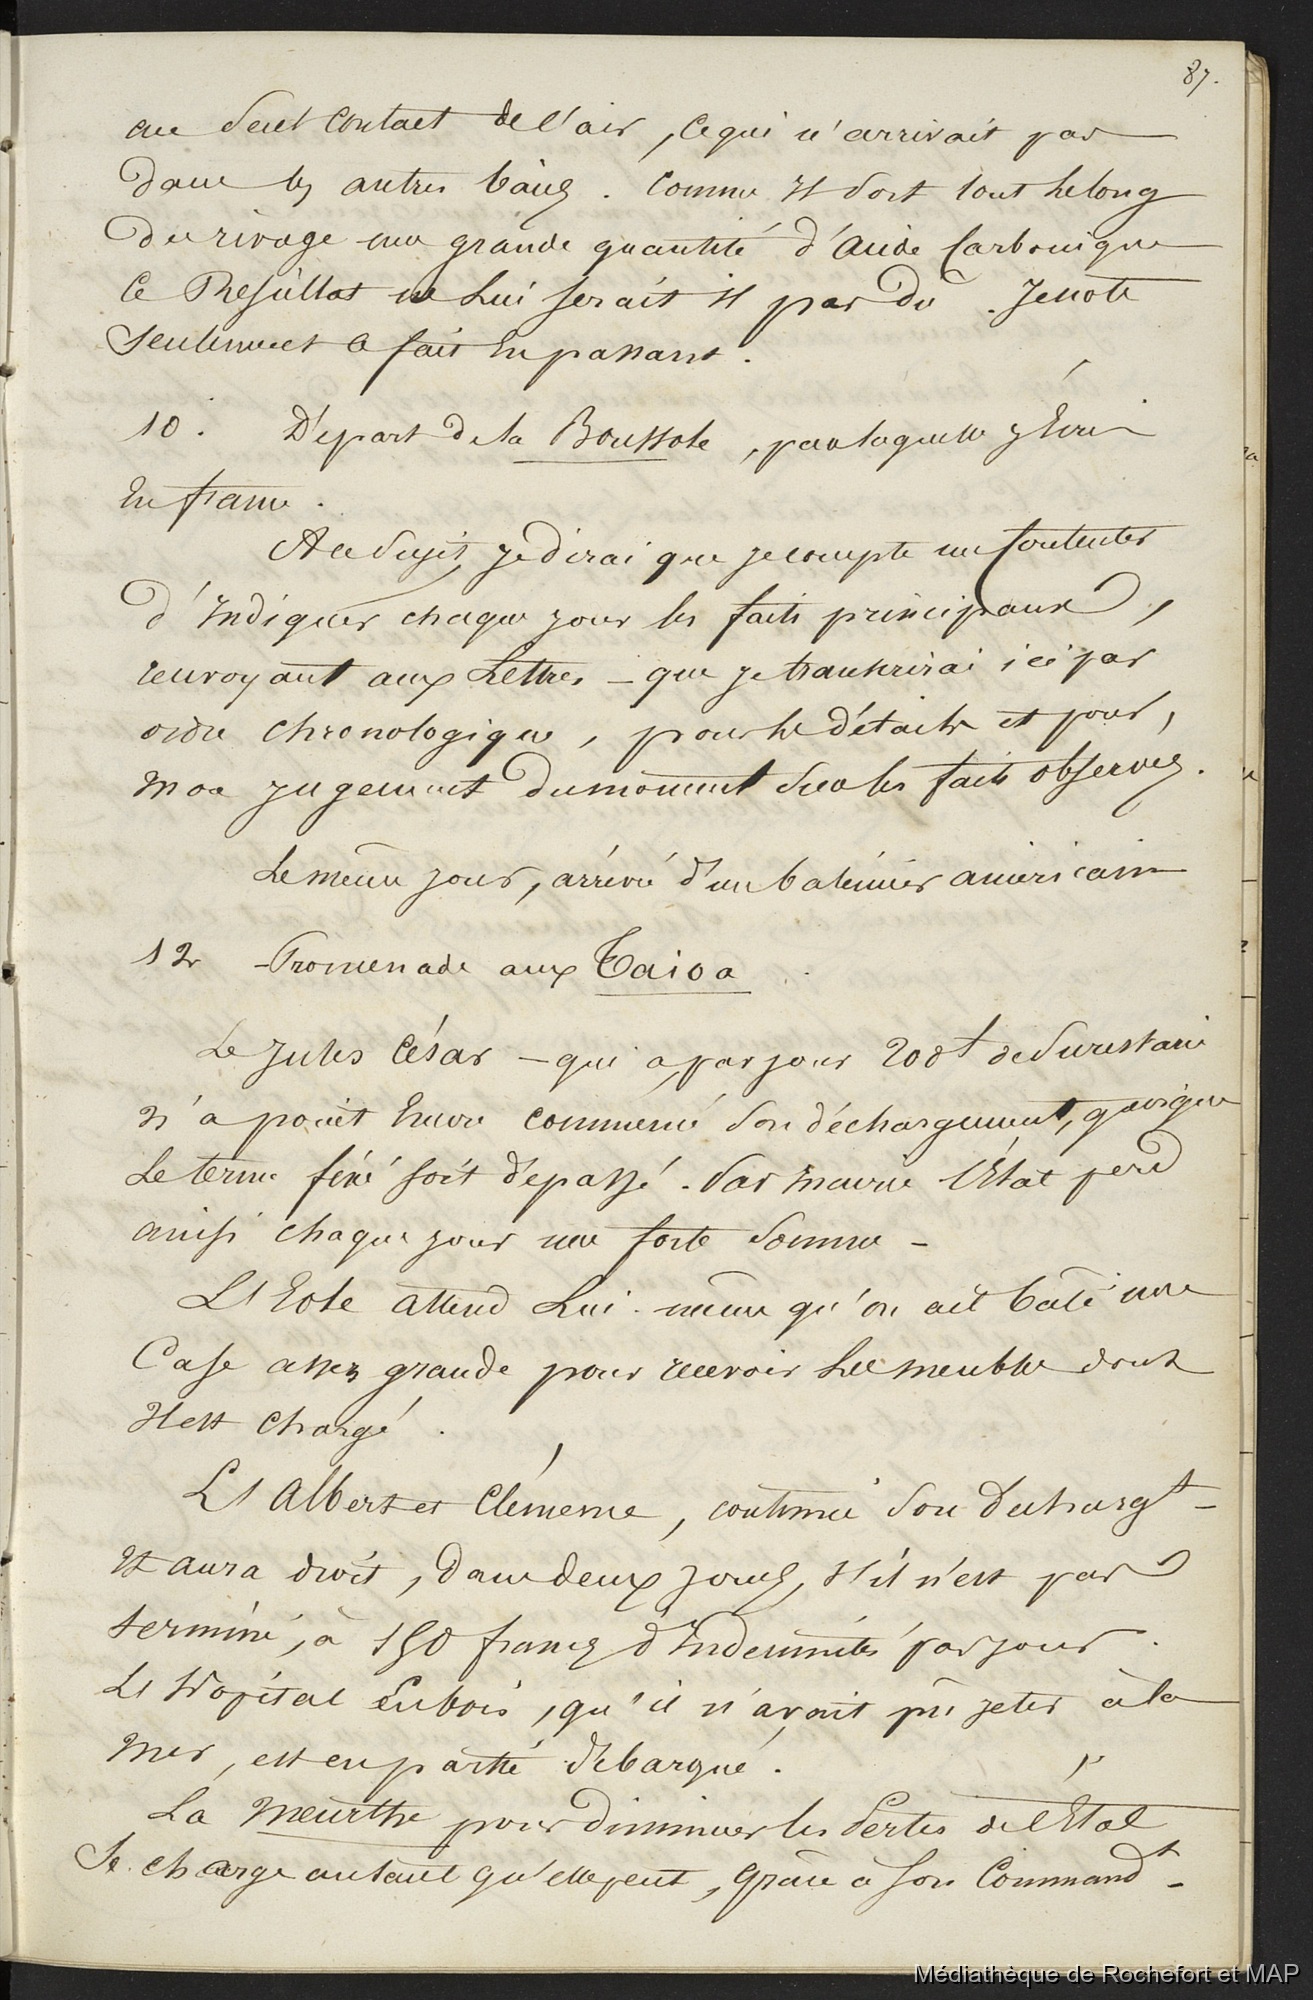 87.
au seul contact de l'air, ce qui n'arrivait pas
dans les autres bains. Comme il sort tout le long
du rivage une grande quantité d'acide carbonique
ce Résultat ne Lui serait il pas dû. Je note
seulement ce fait En passant.
10. Départ de la Boussole, par laquelle j'Ecris
En france.
A ce Sujet, je dirai que je compte me Contenter
d'Indiquer chaque jour les faits principaux,
renvoyant aux Lettres - que je transcrirai ici par
ordre chronologique, pour les détails et pour,
mon jugement du moment sur les faits observés.
Le même jour, arrivée d'un baleinier américain
12 - Promenade aux Taioa
Le Jules César - qui a par jour 200 f de Surestarie
N'a point Encore commencé Son déchargement, quoique
Le terme fixé soit dépassé. Par Incurie l'Etat perd
ainsi chaque jour une forte Somme -
L'Eole attend Lui-même qu'on ait bâti une
Case assez grande pour recevoir Les meubles dont
Il est chargé.
L'Albert et Clémence, continue Son Décharg.t -
Il aura droit, Dans deux jours, s'il n'est pas
terminé, à 150 francs d'Indemnités par jour.
L'Hôpital En bois, qu'il n'avait pû jeter à la
Mer, est en partie débarqué.
La Meurthe pour diminuer les Pertes de l'Etat
Se charge autant qu'elle peut, grâce à Son Command.t -
Médiathèque de Rochefort et MAP